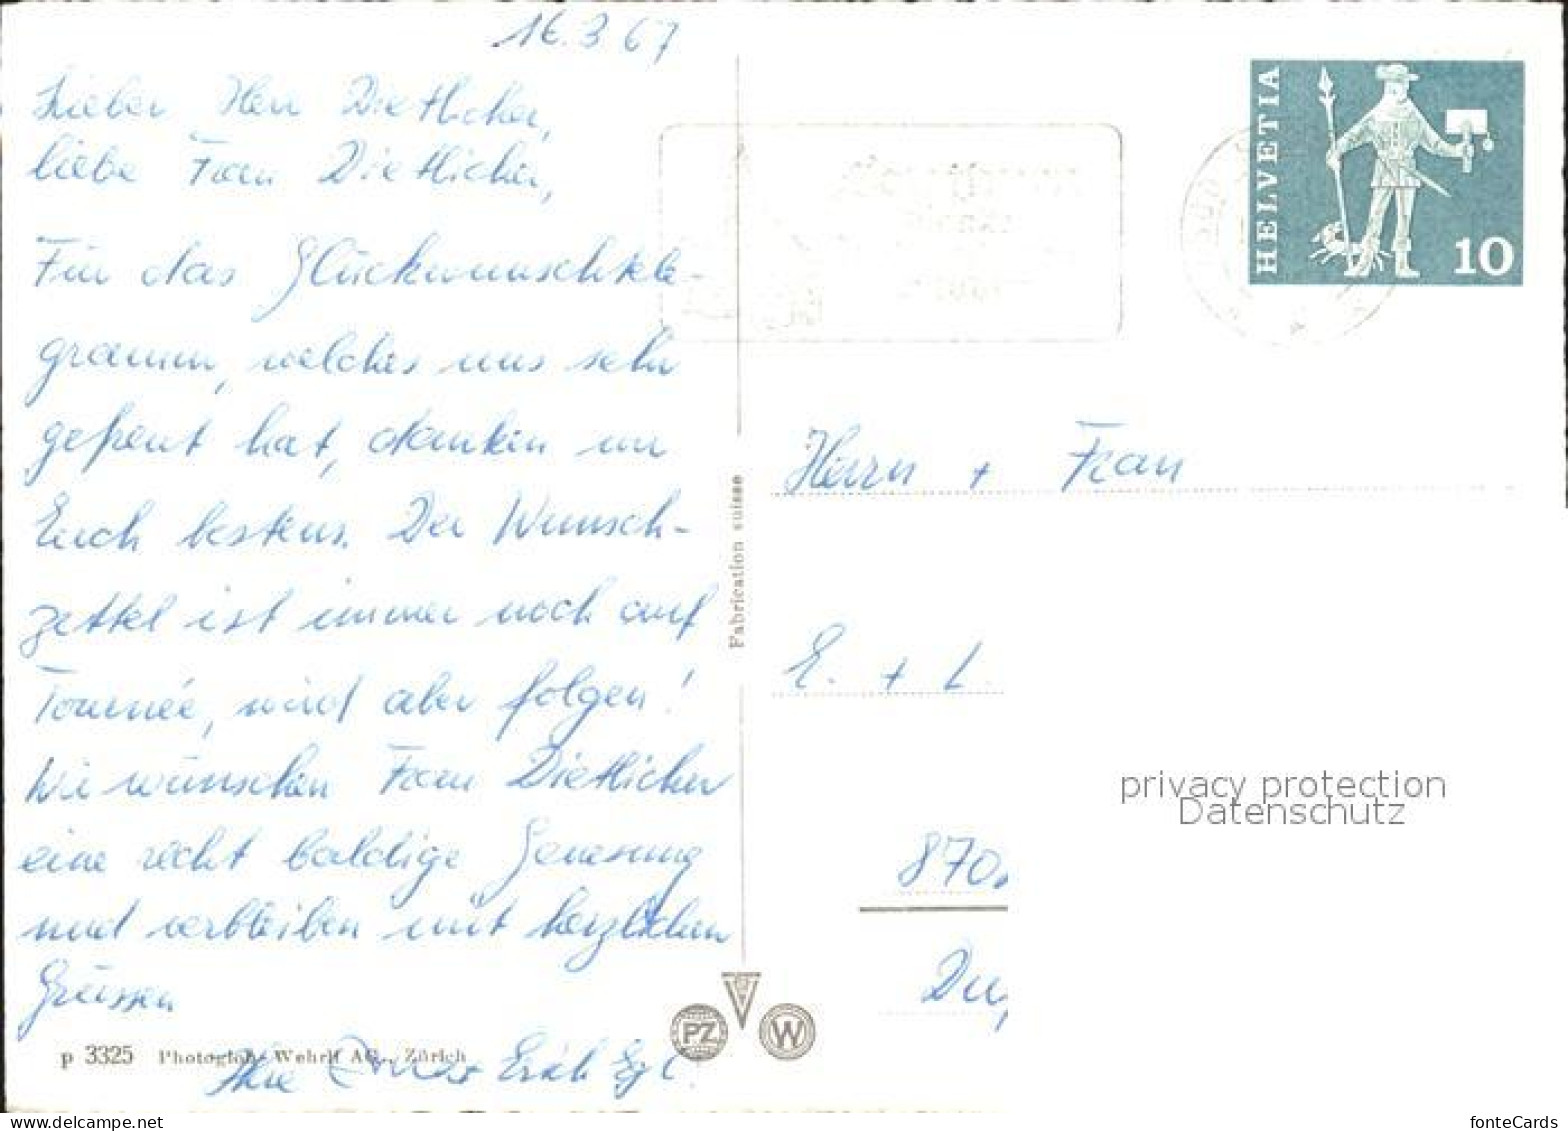 16.3 67
Lieber Herr Dietlicher,
liebe Frau Dietlicher,
Für das Glückwunschtele-
gramm, welches uns sehr
gefreut hat, danken wir
Euch bestens. Der Wunsch-
zettel ist immer noch auf
Tournée, wird aber folgen!
Wir wünschen Frau Dietlicher
eine recht baldige Genesung
und verbleiben mit herzlichen
Grüssen
Ihre Erich
p 3325 Photoglob-Wehrli AG., Zürich
Fabrication suisse
PZ
W
HELVETIA
10
Herrn + Frau
E. + L.
870
privacy protection
Datenschutz
www.delcampe.net
fonteCards